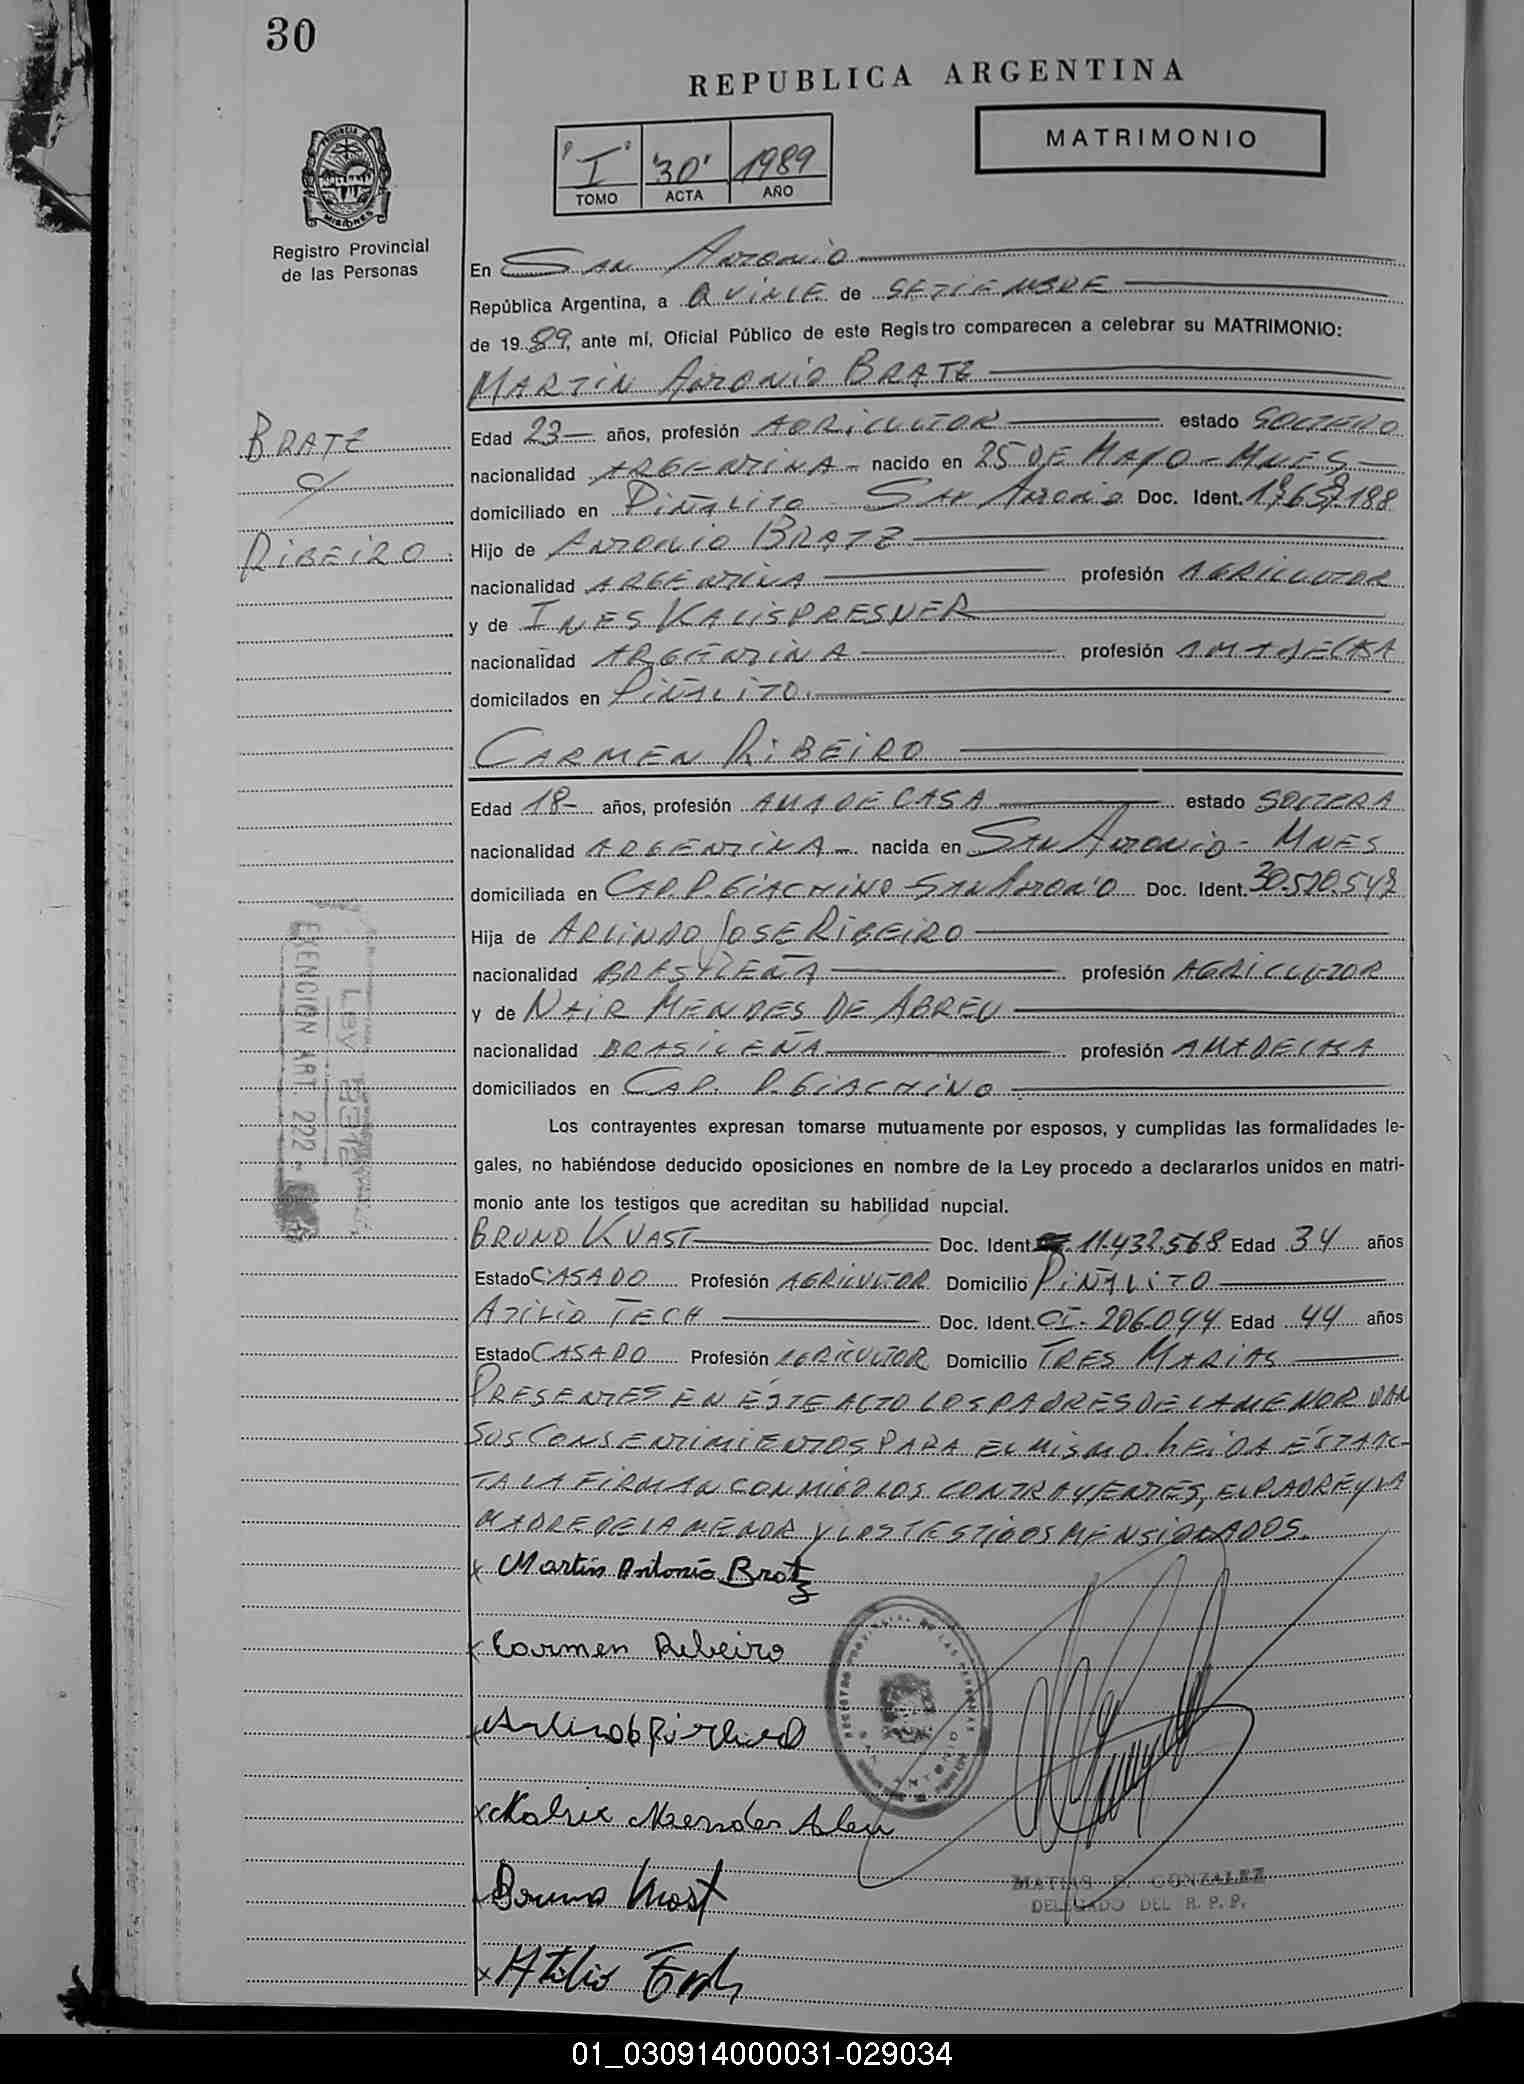 30
REPUBLICA ARGENTINA
MATRIMONIO
"I" "30" 1989
TOMO ACTA AÑO
PROVINCIA DE MISIONES
Registro Provincial
de las Personas
En SAN ANTONIO
República Argentina, a QUINCE de SETIEMBRE
de 19 89, ante mí, Oficial Público de este Registro comparecen a celebrar su MATRIMONIO:
MARTIN ANTONIO BRATZ
BRATZ
c/
RIBEIRO
Edad 23 años, profesión AGRICULTOR estado SOLTERO
nacionalidad ARGENTINA nacido en 25 DE MAYO - MNES
domiciliado en PIÑALITO SAN ANTONIO Doc. Ident.
Hijo de ANTONIO BRATZ
nacionalidad ARGENTINA profesión AGRICULTOR
y de INES KALISPRESNER
nacionalidad ARGENTINA profesión AMA DE CASA
domicilados en PIÑALITO.
CARMEN RIBEIRO
Edad 18 años, profesión AMA DE CASA estado SOLTERA
nacionalidad ARGENTINA nacida en SAN ANTONIO - MNES
domiciliada en CAP. P. GIACHINO SAN ANTONIO Doc. Ident.
Hija de ARLINDO JOSE RIBEIRO
nacionalidad BRASILEÑA profesión AGRICULTOR
y de NAIR MENDES DE ABREU
nacionalidad BRASILEÑA profesión AMA DE CASA
domiciliados en CAP. P. GIACHINO
EXENCION ART. 202
Ley
Los contrayentes expresan tomarse mutuamente por esposos, y cumplidas las formalidades le-
gales, no habiéndose deducido oposiciones en nombre de la Ley procedo a declararlos unidos en matri-
monio ante los testigos que acreditan su habilidad nupcial.
BRUNO KUAST Doc. Ident. 11.432.568 Edad 34 años
Estado CASADO Profesión AGRICULTOR Domicilio PIÑALITO
ATILIO TECH Doc. Ident. CI- 206.044 Edad 44 años
Estado CASADO Profesión AGRICULTOR Domicilio TRES MARIAS
PRESENTES EN ÉSTE ACTO LOS PADRES DE LA MENOR DAN
SUS CONSENTIMIENTOS PARA EL MISMO. LEIDA ÉSTA AC-
TA LA FIRMAN CONMIGO LOS CONTRAYENTES, EL PADRE Y LA
MADRE DE LA MENOR Y LOS TESTIGOS MENSIONADOS.
x Martin Antonio Bratz
x Carmen Ribeiro
x Mendes Abreu
Bruno Kuast
x Atilio
REGISTRO PROVINCIAL DE LAS PERSONAS
SAN ANTONIO
MATIAS GONZALEZ
DELEGADO DEL R. P. P.
01_030914000031-029034